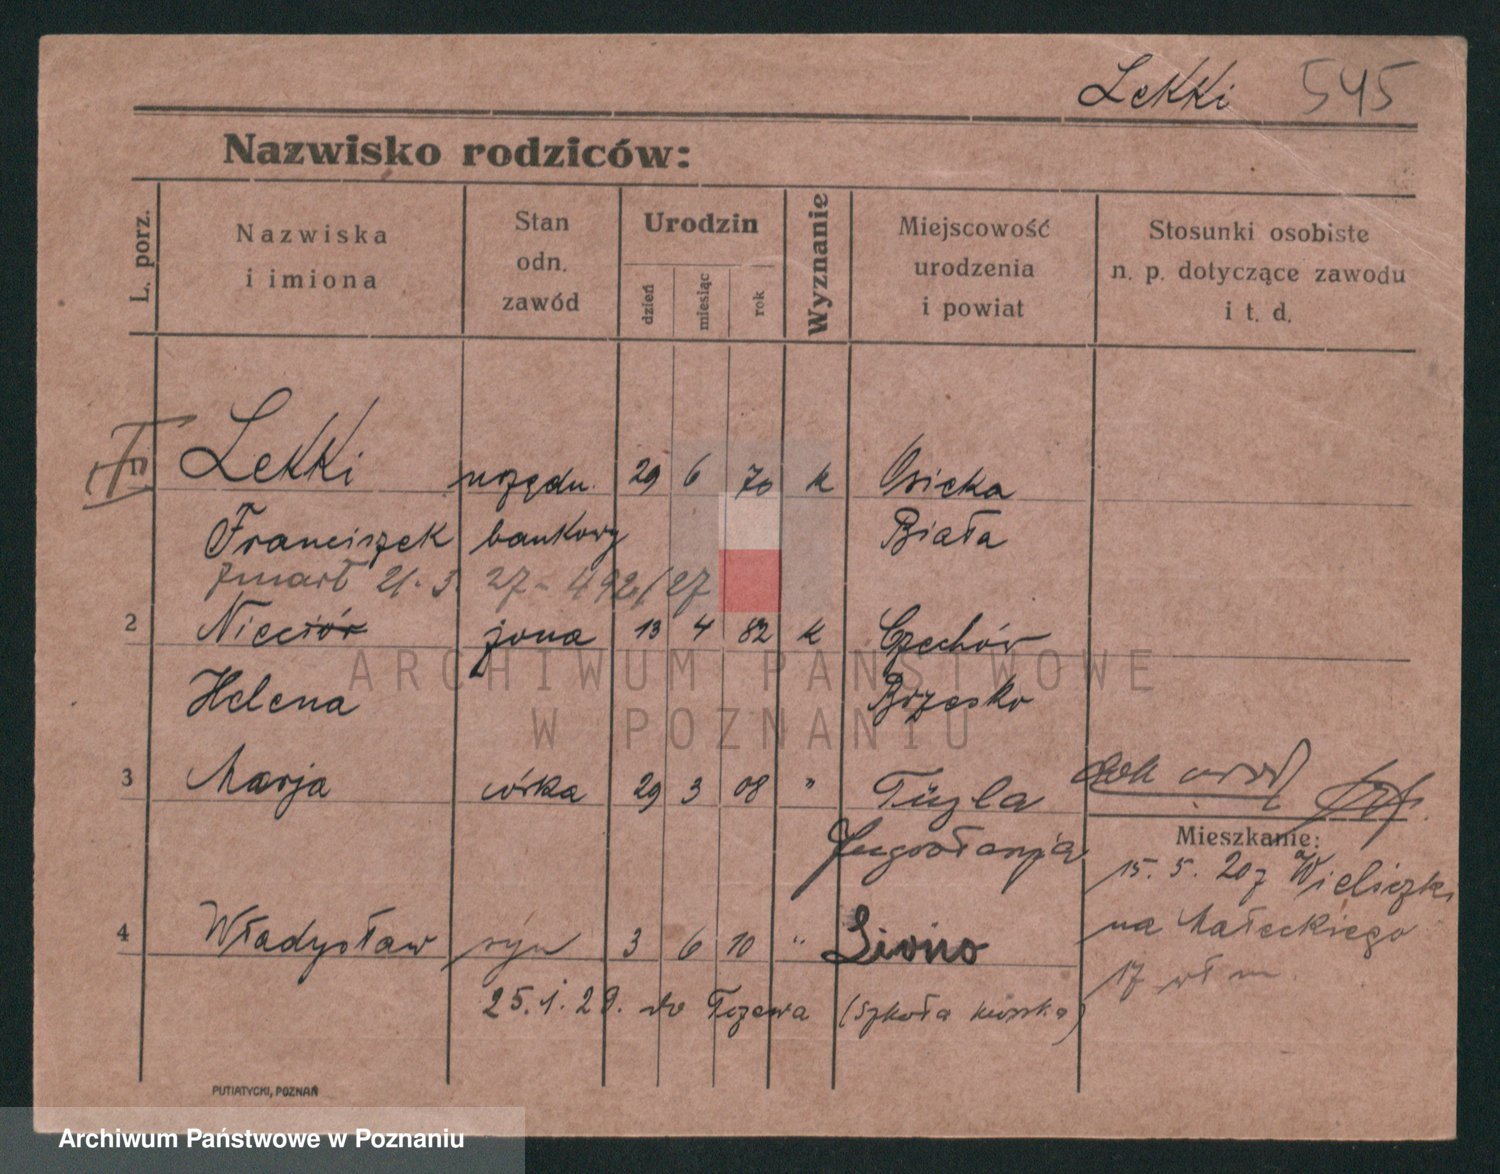 Lekki 545
Nazwisko rodziców:
L. porz.
Nazwiska
i imiona
Stan
odn.
zawód
Urodzin
dzień
miesiąc
rok
Wyznanie
Miejscowość
urodzenia
i powiat
Stosunki osobiste
n. p. dotyczące zawodu
i t. d.
Lekki urzędn. 29 6 70 k Osieka
Franciszek bankowy Biała
zmarł 21. 3. 27 - 492/27
2 Niećiór żona 13 4 82 k Czechów
Helena Brzesko
3 Marja córka 29 3 08 " Tuzla
Jugosłavja
Mieszkanie:
15. 5. 20 z Wieliczki
na Małeckiego
17
4 Władysław syn 3 6 10 " Livno
25. 1. 29. do Tczewa (szkoła morska)
PUTIATYCKI, POZNAŃ
ARCHIWUM PAŃSTWOWE
W POZNANIU
Archiwum Państwowe w Poznaniu